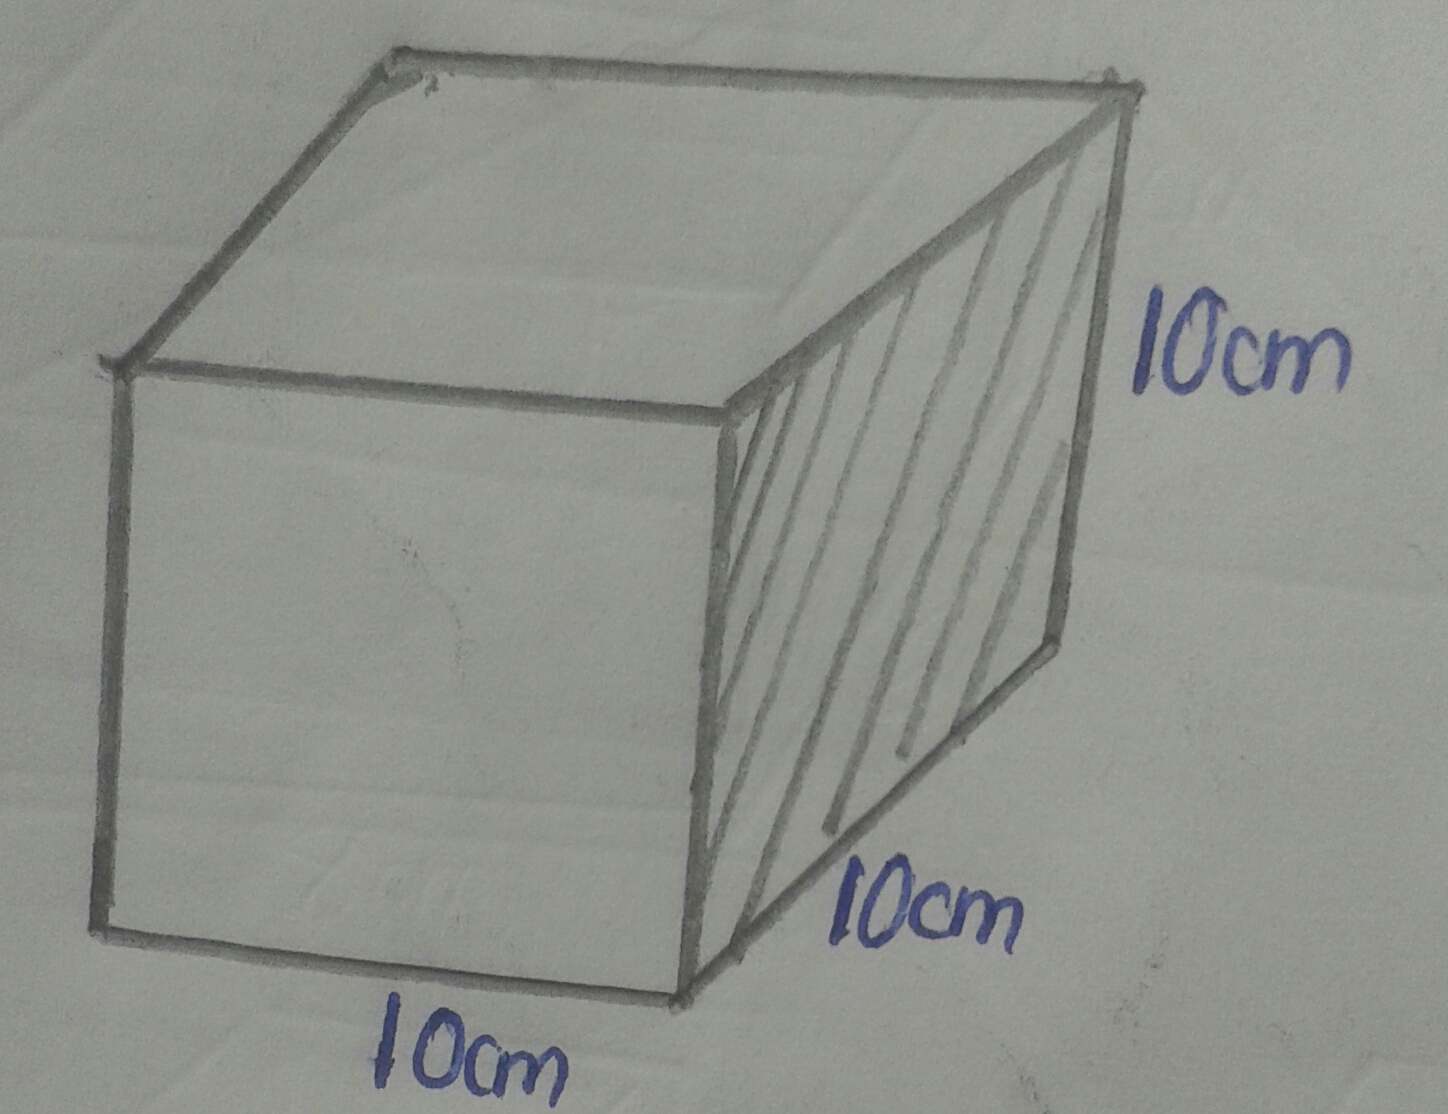 10cm
10cm
10cm